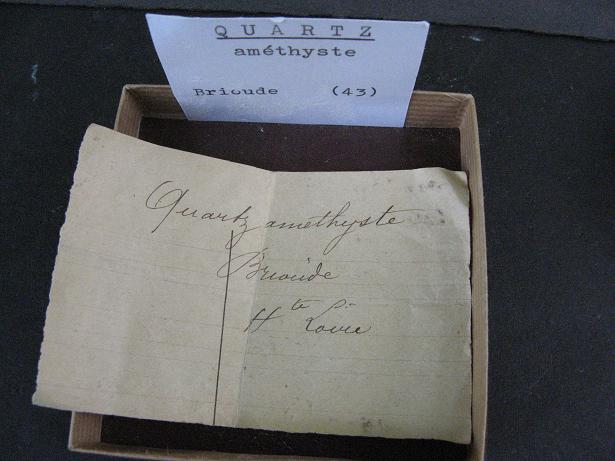 QUARTZ
améthyste
Brioude (43)
Quartz améthyste
Brioude
Hte Loire